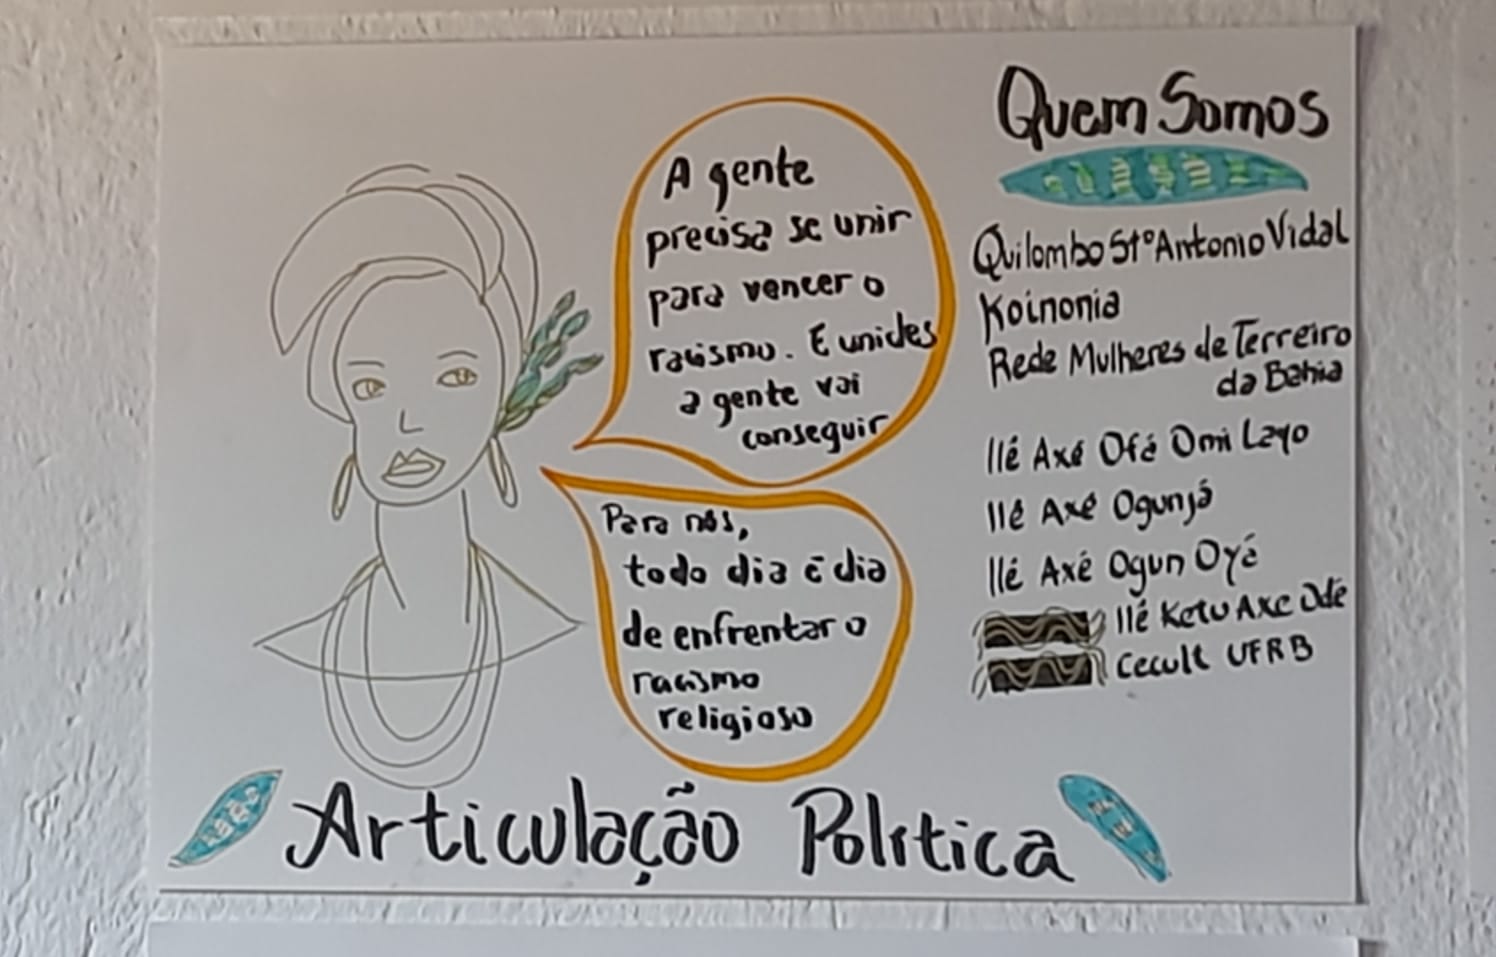 A gente
precisa se unir
para vencer o
racismo. E unides
a gente vai
conseguir
Para nós,
todo dia é dia
de enfrentar o
racismo
religioso
Quem Somos
Quilombo Stº Antonio Vidal
Koinonia
Rede Mulheres de Terreiro
da Bahia
Ilê Axé Ofá Omi Layo
Ilê Axé Ogunjá
Ilê Axé Ogun Oyá
Ilê Ketu Axe Ode
Cecult UFRB
Articulação Política